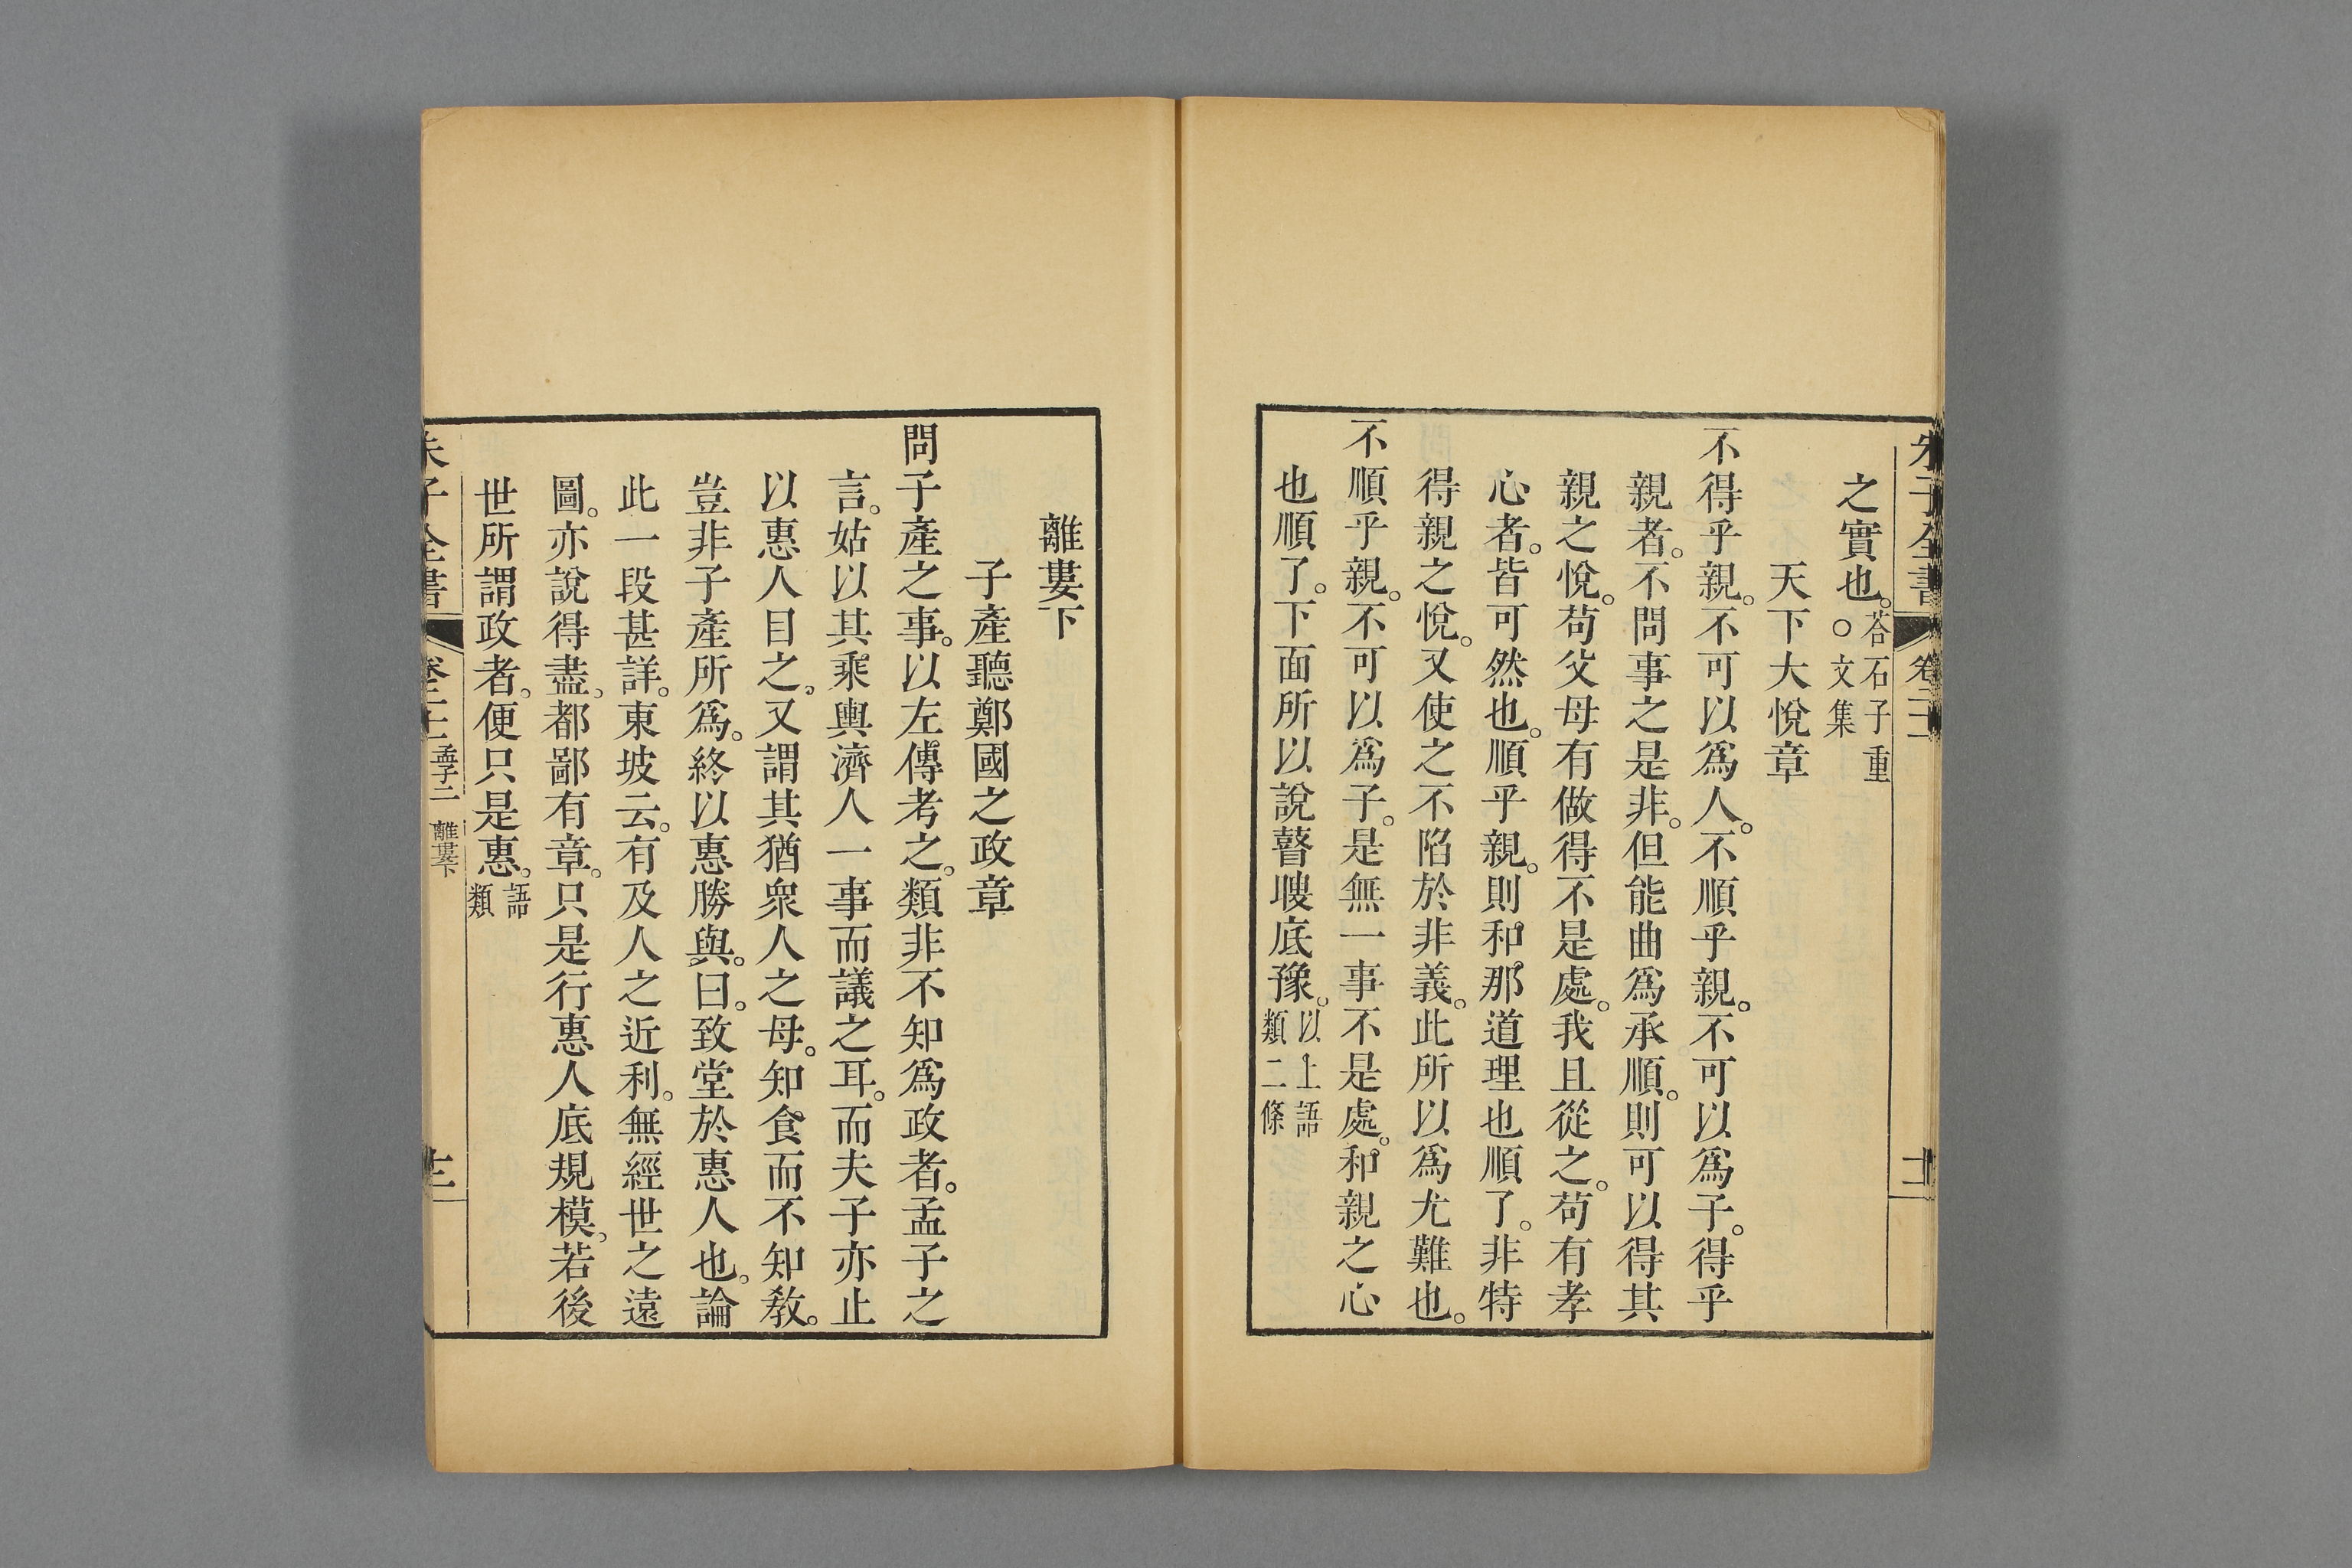 朱子全書 卷二十
之實也。答石子重○文集
天下大悅章
不得乎親。不可以爲人。不順乎親。不可以爲子。得乎
親者。不問事之是非。但能曲爲承順。則可以得其
親之悅。苟父母有做得不是處。我且從之。苟有孝
心者。皆可然也。順乎親。則和那道理也順了。非特
得親之悅。又使之不陷於非義。此所以爲尤難也。
不順乎親。不可以爲子。是無一事不是處。和親之心
也順了。下面所以說瞽瞍底豫。以上語類二條
離婁下
子產聽鄭國之政章
問子產之事。以左傳考之。類非不知爲政者。孟子之
言。姑以其乘輿濟人一事而議之耳。而夫子亦止
以惠人目之。又謂其猶衆人之母。知食而不知敎。
豈非子產所爲。終以惠勝與。曰。致堂於惠人也。論
此一段甚詳。東坡云。有及人之近利。無經世之遠
圖。亦說得盡。都鄙有章。只是行惠人底規模。若後
世所謂政者。便只是惠。語類
朱子全書 孟子二 離婁下